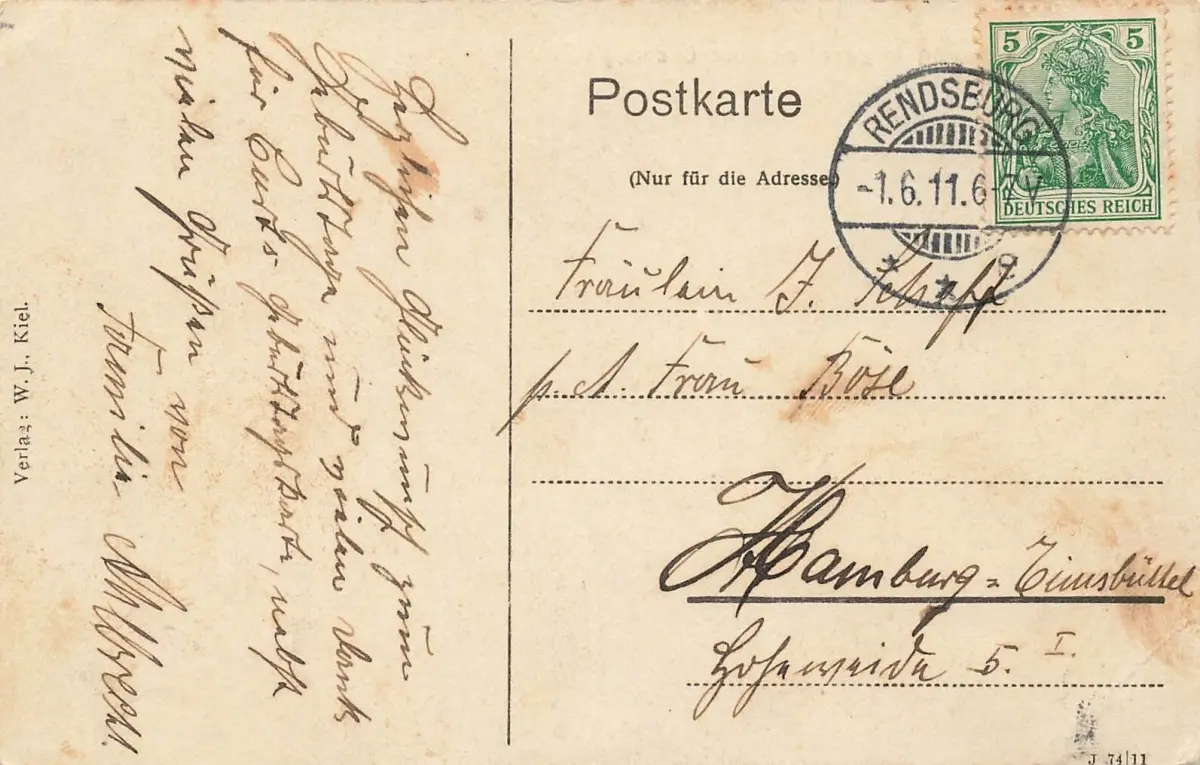 Herzlichen Glückwunsch zum
Geburtstage und vielen Dank
für Curt's Geburtstagskarte, nebst
vielen Grüßen von
Familie Albrecht.
Verlag: W. J., Kiel.
Postkarte
(Nur für die Adresse)
5 5
DEUTSCHES REICH
RENDSBURG
-1.6.11.6-7V
* * e
Fräulein J. Schaff
p. A. Frau Böse
Hamburg=Eimsbüttel
Hoheweide 5. I.
J 74|11